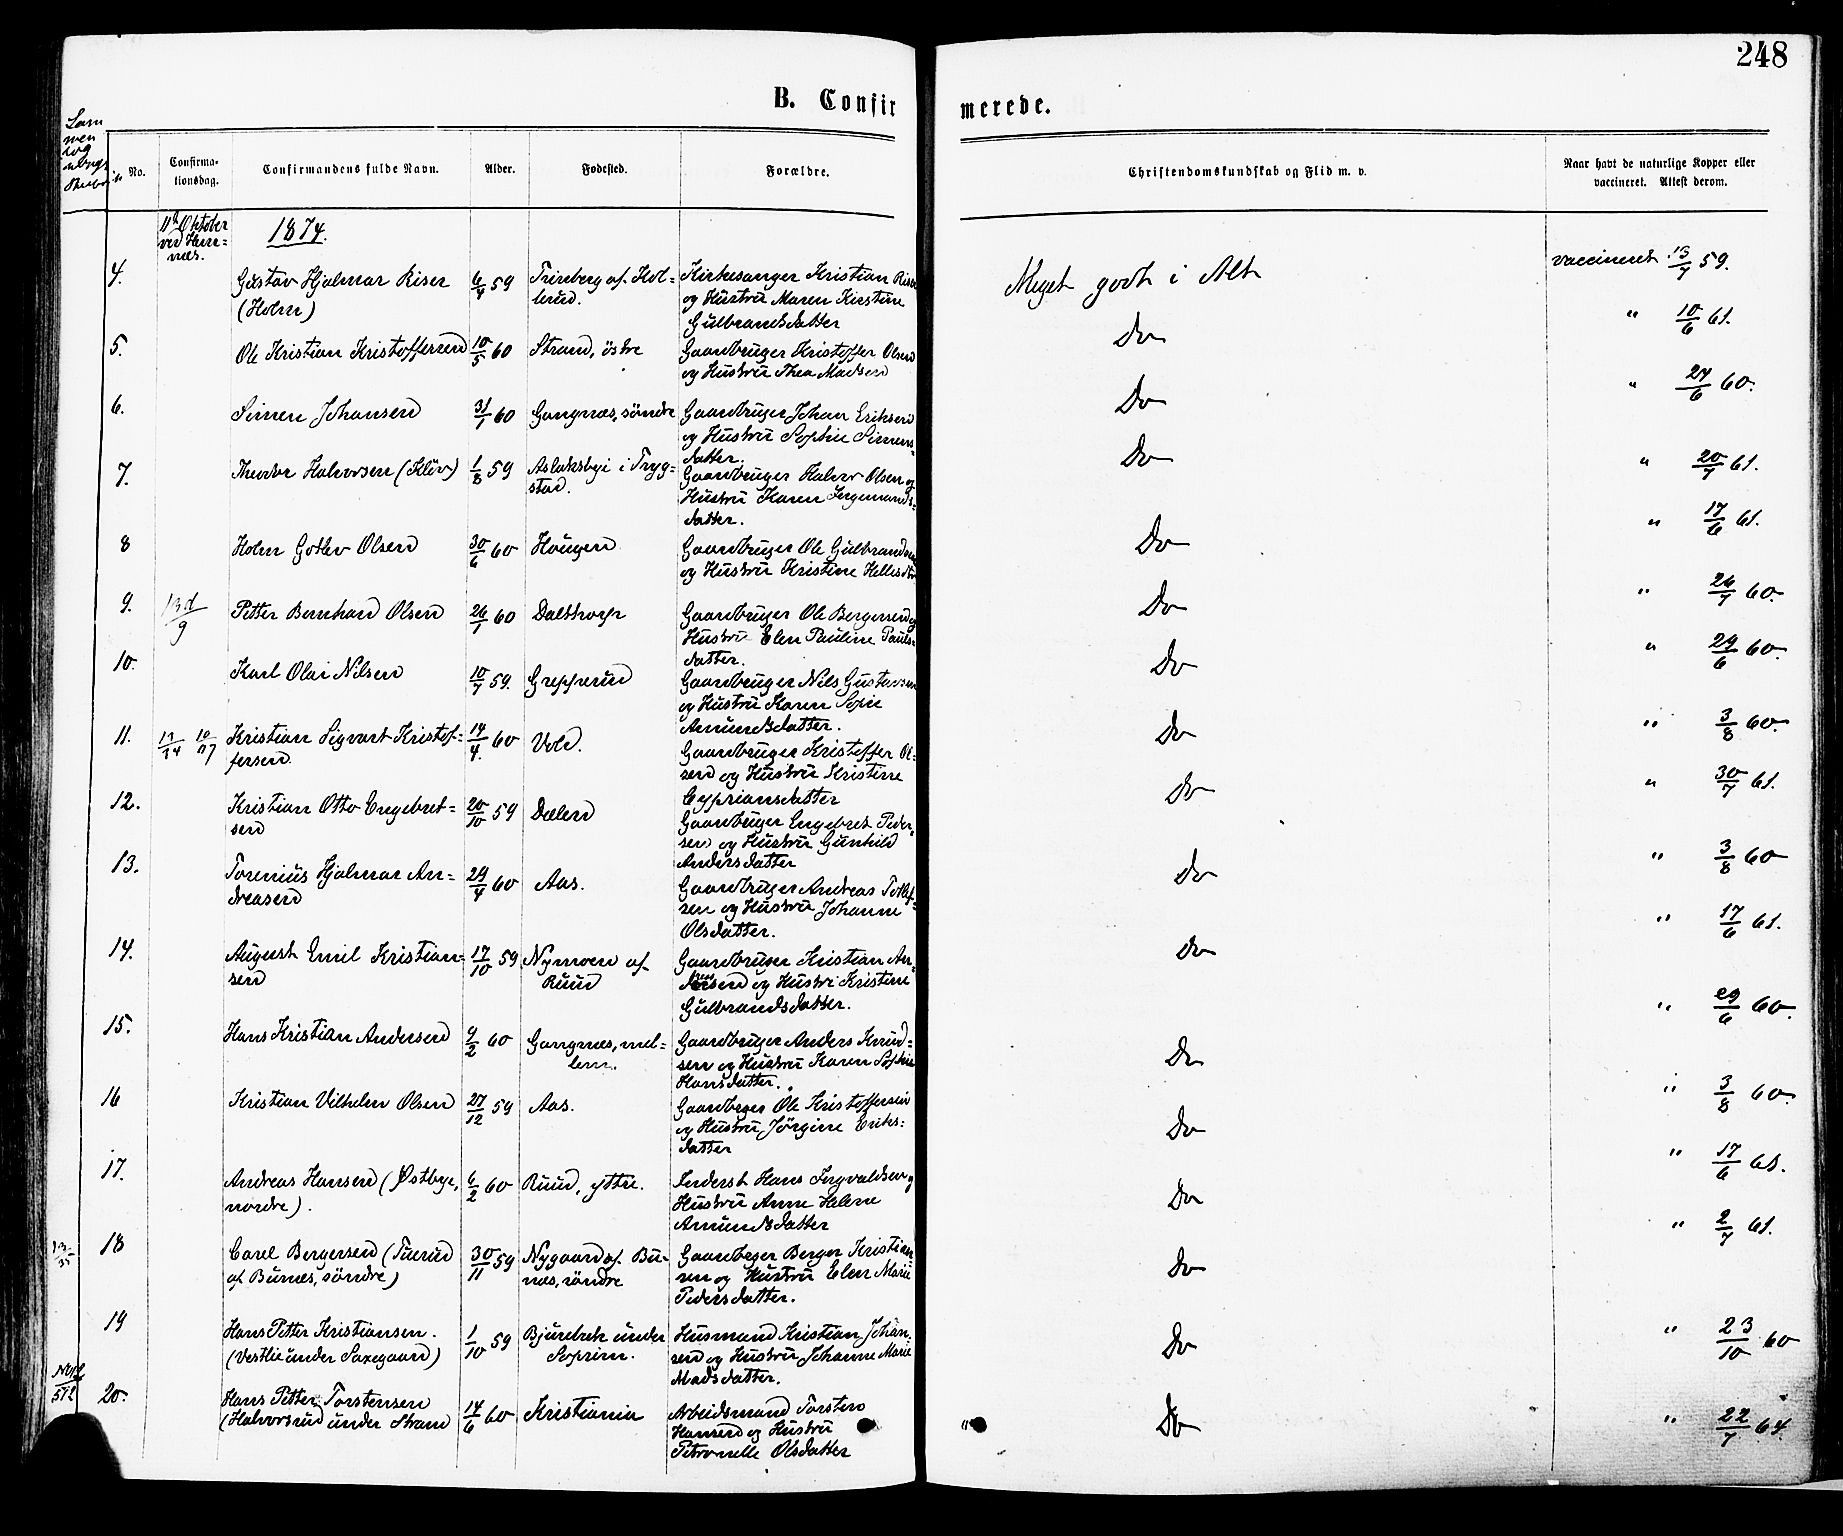 248
B. Confirmerede.
No.
Confirma-
tionsdag.
Confirmandens fulde Navn.
Alder.
Fødested.
Forældre.
Christendomskundskab og Flid m. v.
Naar havt de naturlige Kopper eller
vaccineret. Attest derom.
11te Oktober
ved Hem-
næs.
1874.
4.
Gustav Hjalmar Riser
(Holm)
6/4 59
af Hol-
lerud.
Kirkesanger Kristian Riser
og Hustru Maren Kirstine
Gulbrandsdatter
Meget godt i Alt
vaccineret 13/7 59.
5.
Ole Kristian Kristoffersen
10/5 60
Strand, östre
Gaardbruger Kristoffer Olsen
og Hustru Thea Madsen
Do
" 10/6 61.
6.
Simen Johansen
31/1 60
Gangnæs, søndre
Gaardbruger Johan Eriksen
og Hustru Sophie Simens-
datter.
Do
" 27/6 60.
7.
Theodor Halvorsen (Klöv)
1/8 59
Aslaksbyi i Tryg-
stad.
Gaardbruger Halvor Olsen og
Hustru Karen Ingemands-
datter.
Do
" 20/7 61.
8
Holm Gotlev Olsen
30/6 60
Haugen
Gaardbruger Ole Gulbrandsen
og Hustru Kristine Hellesdtr
Do
" 17/6 61.
9.
13d/9
Petter Bernhard Olsen
26/1 60
Dalttorp
Gaardbruger Ole Bergersen og
Hustru Elen Pauline Pauls-
datter.
Do
" 26/7 60.
10.
Karl Olai Nilsen
10/7 59.
Grepperud
Gaardbruger Nils Gustavsen
og Hustru Karen Sofie
Amundsdatter.
Do
" 29/6 60.
11.
Kristian Sigvart Kristof-
fersen
14/4 60
Vold.
Gaardbruger Kristoffer Ol-
sen og Hustru Kristine
Cypriansdatter
Do
" 3/8 60.
12.
Kristian Otto Engebret-
sen
20/10 59
Dælen
Gaardbruger Engebret Peder-
sen og Hustru Gunhild
Andersdatter
Do
" 30/7 61.
13.
Torenius Hjalmar An-
dreasen
29/4 60
Aas.
Gaardbruger Andreas Tollef-
sen og Hustru Johanne
Olsdatter.
Do
" 3/8 60
14.
August Emil Kristian-
sen
17/10 59
Nymoen af
Ruud
Gaardbruger Kristian An-
dersen og Hustru Kristine
Gulbrandsdatter.
Do
" 17/6 61.
15.
Hans Kristian Andersen
9/2 60
Gangnæs, mel-
lem.
Gaardbruger Anders Knud-
sen og Hustru Karen Sophie
Hansdatter.
Do
" 29/6 60.
16
Kristian Vilhelm Olsen
27/12 59
Aas.
Gaardbrger Ole Kristoffersen
og Hustru Jørgine Eriks-
datter
Do
" 3/8 60.
17.
Andreas Hansen (Østbye,
nordre).
6/2 60
Ruud, yttre.
Inderst Hans Ingvaldsen og
Hustru Anne Helene
Amundsdatter
Do
" 17/6 61.
18
Carel Bergersen (Tuerud
af Bunæs, søndre)
30/11 59
Nygaard af Bu-
næs, søndre
Gaardbrger Berger Kristian-
sen og Hustru Elen Marie
Pedersdatter.
Do
" 2/7 61.
19
Hans Petter Kristiansen.
(Vestlie under Saxegaard)
1/10 59
Bjurebek under
Soprim.
Husmand Kristian Johan-
sen og Hustru Johanne Marie
Madsdatter.
Do
" 23/10 60
20.
Hans Petter Torstensen
(Halvorsrud under Strand
14/6 60
Kristiania
Arbeidsmand Torsten
Hansen og Hustru
Petronelle Olsdatter
" Do
" 22/7 64.